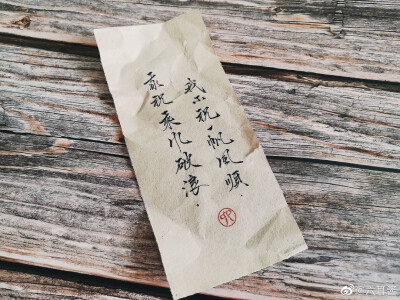 我不祝一帆风顺.
我祝乘风破浪.